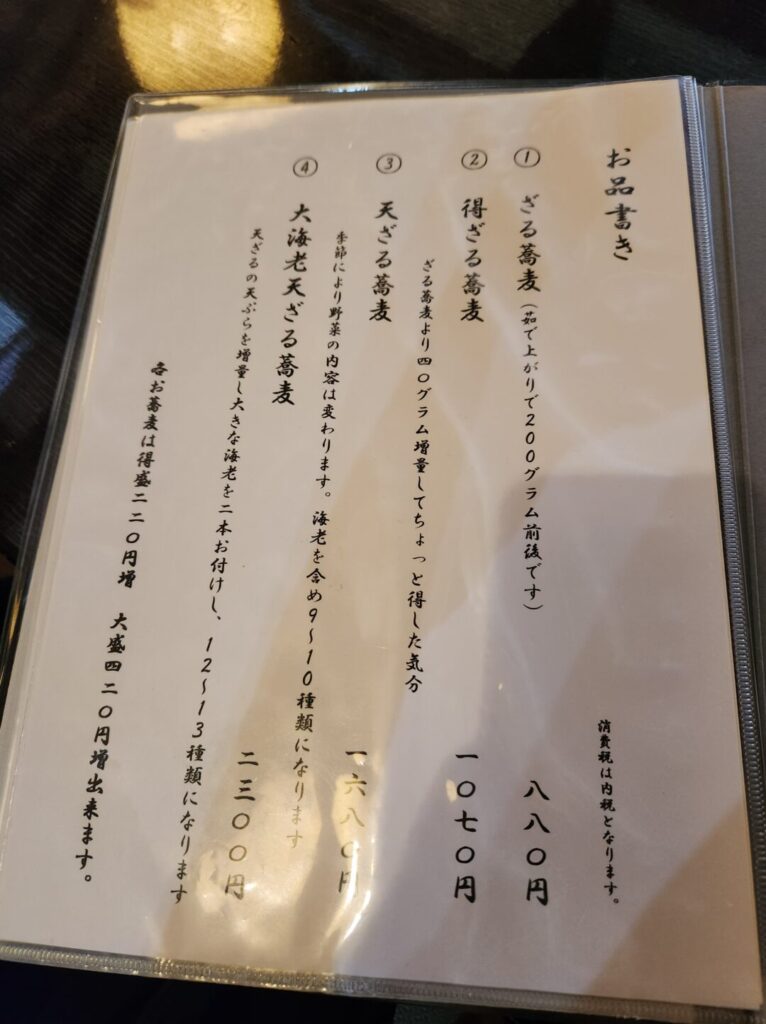 お品書き
消費税は内税となります。
① ざる蕎麦(茹で上がりで200グラム前後です) 八八〇円
② 得ざる蕎麦 一〇七〇円
ざる蕎麦より四〇グラム増量してちょっと得した気分
③ 天ざる蕎麦 一六八〇円
季節により野菜の内容は変わります。海老を含め9～10種類になります
④ 大海老天ざる蕎麦 二三〇〇円
天ざるの天ぷらを増量し大きな海老を二本お付けし、12～13種類になります
各お蕎麦は得盛二二〇円増 大盛四二〇円増出来ます。